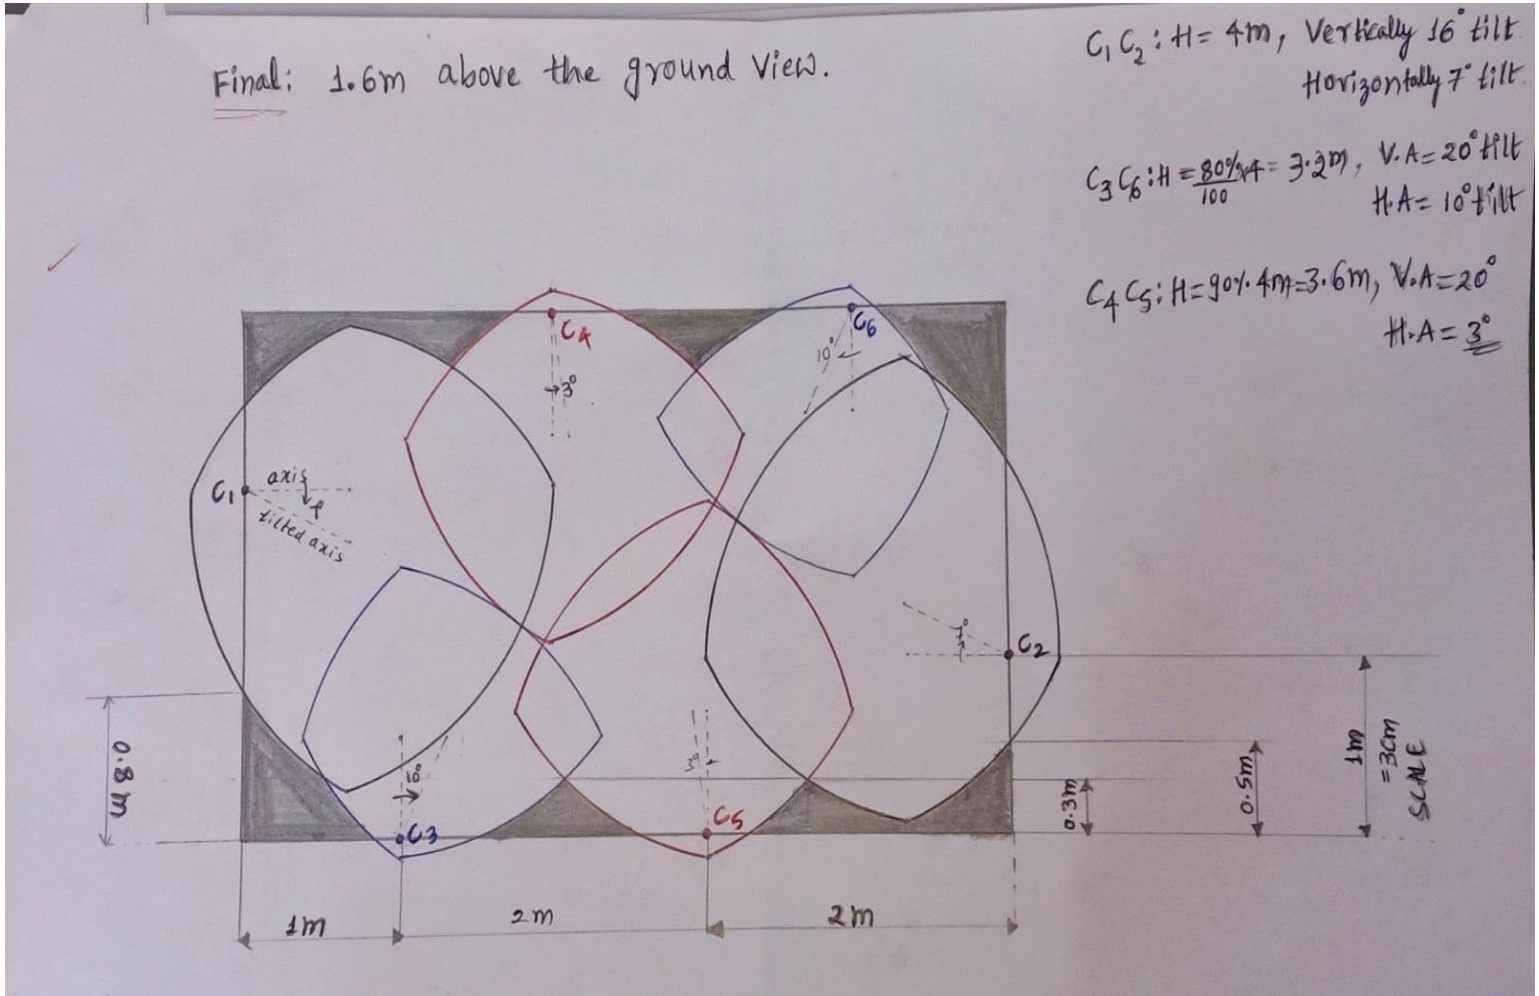 Final: 1.6m above the ground View.
C₁ C₂ : H = 4m, Vertically 16° tilt.
Horizontally 7° tilt.
C₃ C₆ : H = 80%×4/100 = 3.2m, V.A = 20° tilt
H.A = 10° tilt
C₄ C₅ : H = 90% 4m = 3.6m, V.A = 20°
H.A = 3°
C₄
C₆
10°
3°
C₁
axis
tilted axis
7°
C₂
0.8 m
10°
3°
C₃
C₅
0.3m
0.5m
1m
= 3cm
SCALE
1m
2m
2m